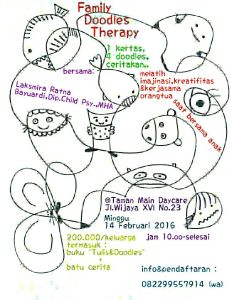 Family
Doodles
Therapy
1 kertas,
4 doodles,
ceritakan..
bersama:
Laksmira Ratna
Bayuardi,Dip.Child Psy.,MHA
melatih
imajinasi,kreatifitas
&kerjasama
orangtua
saat bersama anak
@Taman Main Daycare
Jl.Wijaya XVI No.23
Minggu
14 Februari 2016
jam 10.00-selesai
200.000/keluarga
termasuk :
buku "Tulis&Doodles"
+
batu cerita
info&pendaftaran :
082299557914 (wa)